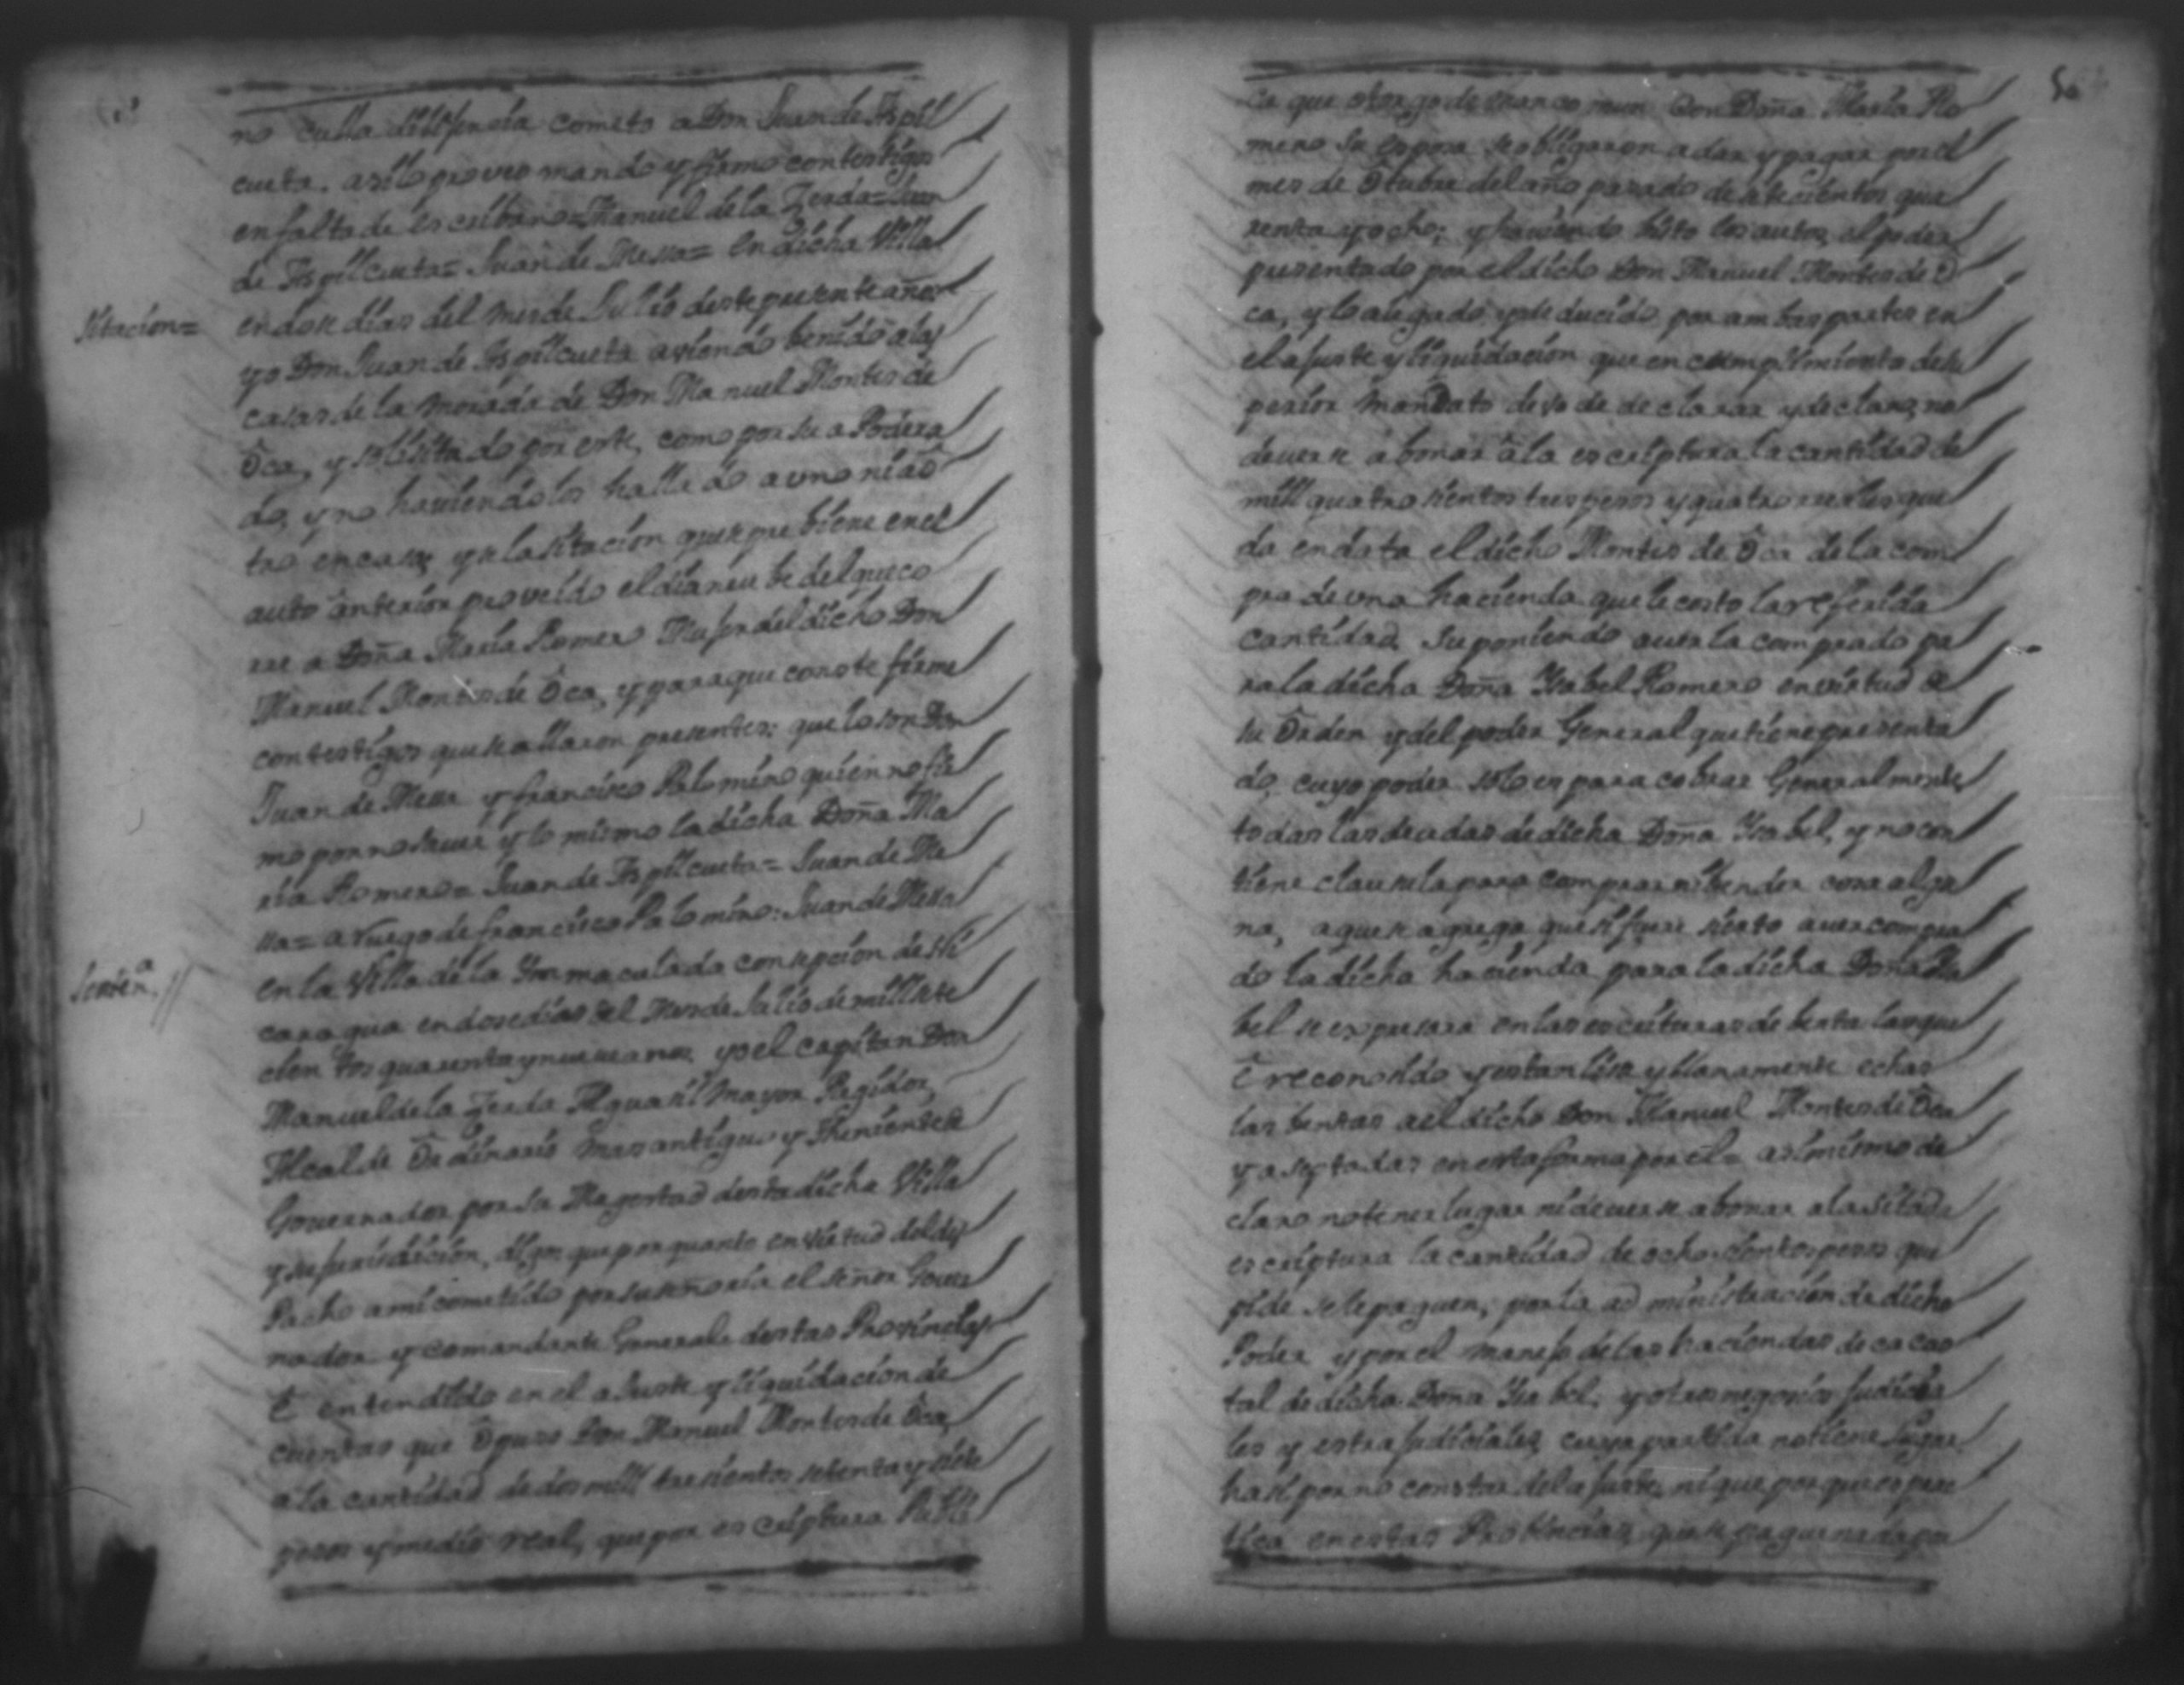 no culla dilisensia cometo a Don Juan de Aspil
cueta. asilo proveo mando y firmo con testigos
en falta de escribano = Manuel de la Zerda = Juan
de Aspilcueta = Juan de Messa = En dicha Villa
Sitacion =
en dose dias del mes de Julio deste presente año
yo Don Juan de Aspilcueta aviendo benido a las
casas de la morada de Don Manuel Montes de
Oca, y solisitado por este, como por su a Podera
do, y no haviendolos hallado a uno ni a o
tro en casa, yse la sitacion que se previene en el
auto anterior proveido el dia nuebe del que co
rre a Doña Maria Romero Muser del dicho Don
Manuel Montes de Oca, y para que conste firme
con testigos que se allaron presentes: que lo son Don
Juan de Messa y francisco Palomino quien no fir
mo por no saver y lo mismo la dicha Doña Ma
ria Romero = Juan de Aspilcueta = Juan de Me
ssa = a Ruego de francisco Palomino: Juan de Messa
Senten.ª //
en la Villa de la Immaculada consepcion de Ni
caragua en dose dias del mes de Julio de mill sete
cientos quarenta y nueve anos, yo el capitan Don
Manuel de la Zerda Alguasil mayor Regidor,
Alcalde Ordinario mas antiguo y Theniente de
Governador por su Magestad desta dicha Villa
y su jurisdicion, digo: que por quanto en virtud del des
Pacho a mi cometido por su señoria el señor Gover
nador y comandante General destas Provincias
E entendido en el ajuste y liquidacion de
cuentas que Opuso Don Manuel Montes de Oca,
a la cantidad de dos mill tresientos setenta y siete
pesos y medio real, que por escriptura Publi
50
ca que otorgo de mancomun con Doña Maria Ro
mero su esposa se obligaron a dar y pagar por el
mes de Otubre del año pasado de setecientos qua
renta y ocho; y haviendo bisto los autos, el poder
presentado por el dicho Don Manuel Montes de O
ca, y lo alegado y deducido por ambas partes en
el ajuste y liquidacion que en cumplimiento de su
perior Mandato devo de declarar y declaro, no
deverse abonar â la escriptura la cantidad de
mill quatrosientos tres pesos y quatro reales que
da en data el dicho Montes de Oca de la com
pra de una hacienda que le costo la referida
cantidad, suponiendo averla comprado pa
ra la dicha Doña Ysabel Romero en virtud de
su Orden y del poder General que tiene presenta
do, cuyo poder solo es para cobrar Generalmente,
todas las deudas de dicha Doña Ysabel, y no con
tiene clausula para comprar ni bender cosa algu
na, a que se agrega que si fuera sierto aver compra
do la dicha hacienda para la dicha Doña Ysa
bel se expresara en las escrituras de benta las que
E reconosido y estan lisa y llanamente echas
las bentas a el dicho Don Manuel Montes de Oca
y aseptadas en esta forma por el = asimismo de
claro no tener lugar ni deverse abonar a la sitada
escriptura la cantidad de ochocientos pesos que
pide se le paguen, por la administracion de dicho
Poder y por el manejo de las haciendas de cacao
tal de dicha Doña Ysabel; y otros negosios Judicia
les y estrajudiciales, cuya partida no tiene lugar
hasi por no constar del ajuste, ni que porque es prac
tica en estas Provincias, que se pague nada por